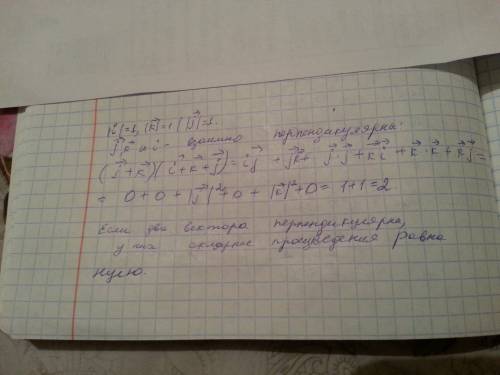 |i⃗|=1, |k⃗|=1, |j⃗|=1.
j⃗, k⃗ и i⃗ - взаимно перпендикулярна:
(j⃗+k⃗)(i⃗+k⃗+j⃗)= i⃗j⃗ + j⃗k⃗+ j⃗·j⃗+k⃗i⃗+k⃗·k⃗+k⃗j⃗=
= 0+0+|j⃗|²+0+|k⃗|²+0=1+1=2
Если два вектора перпендикулярна,
у них скларное произведения равна
нулю.